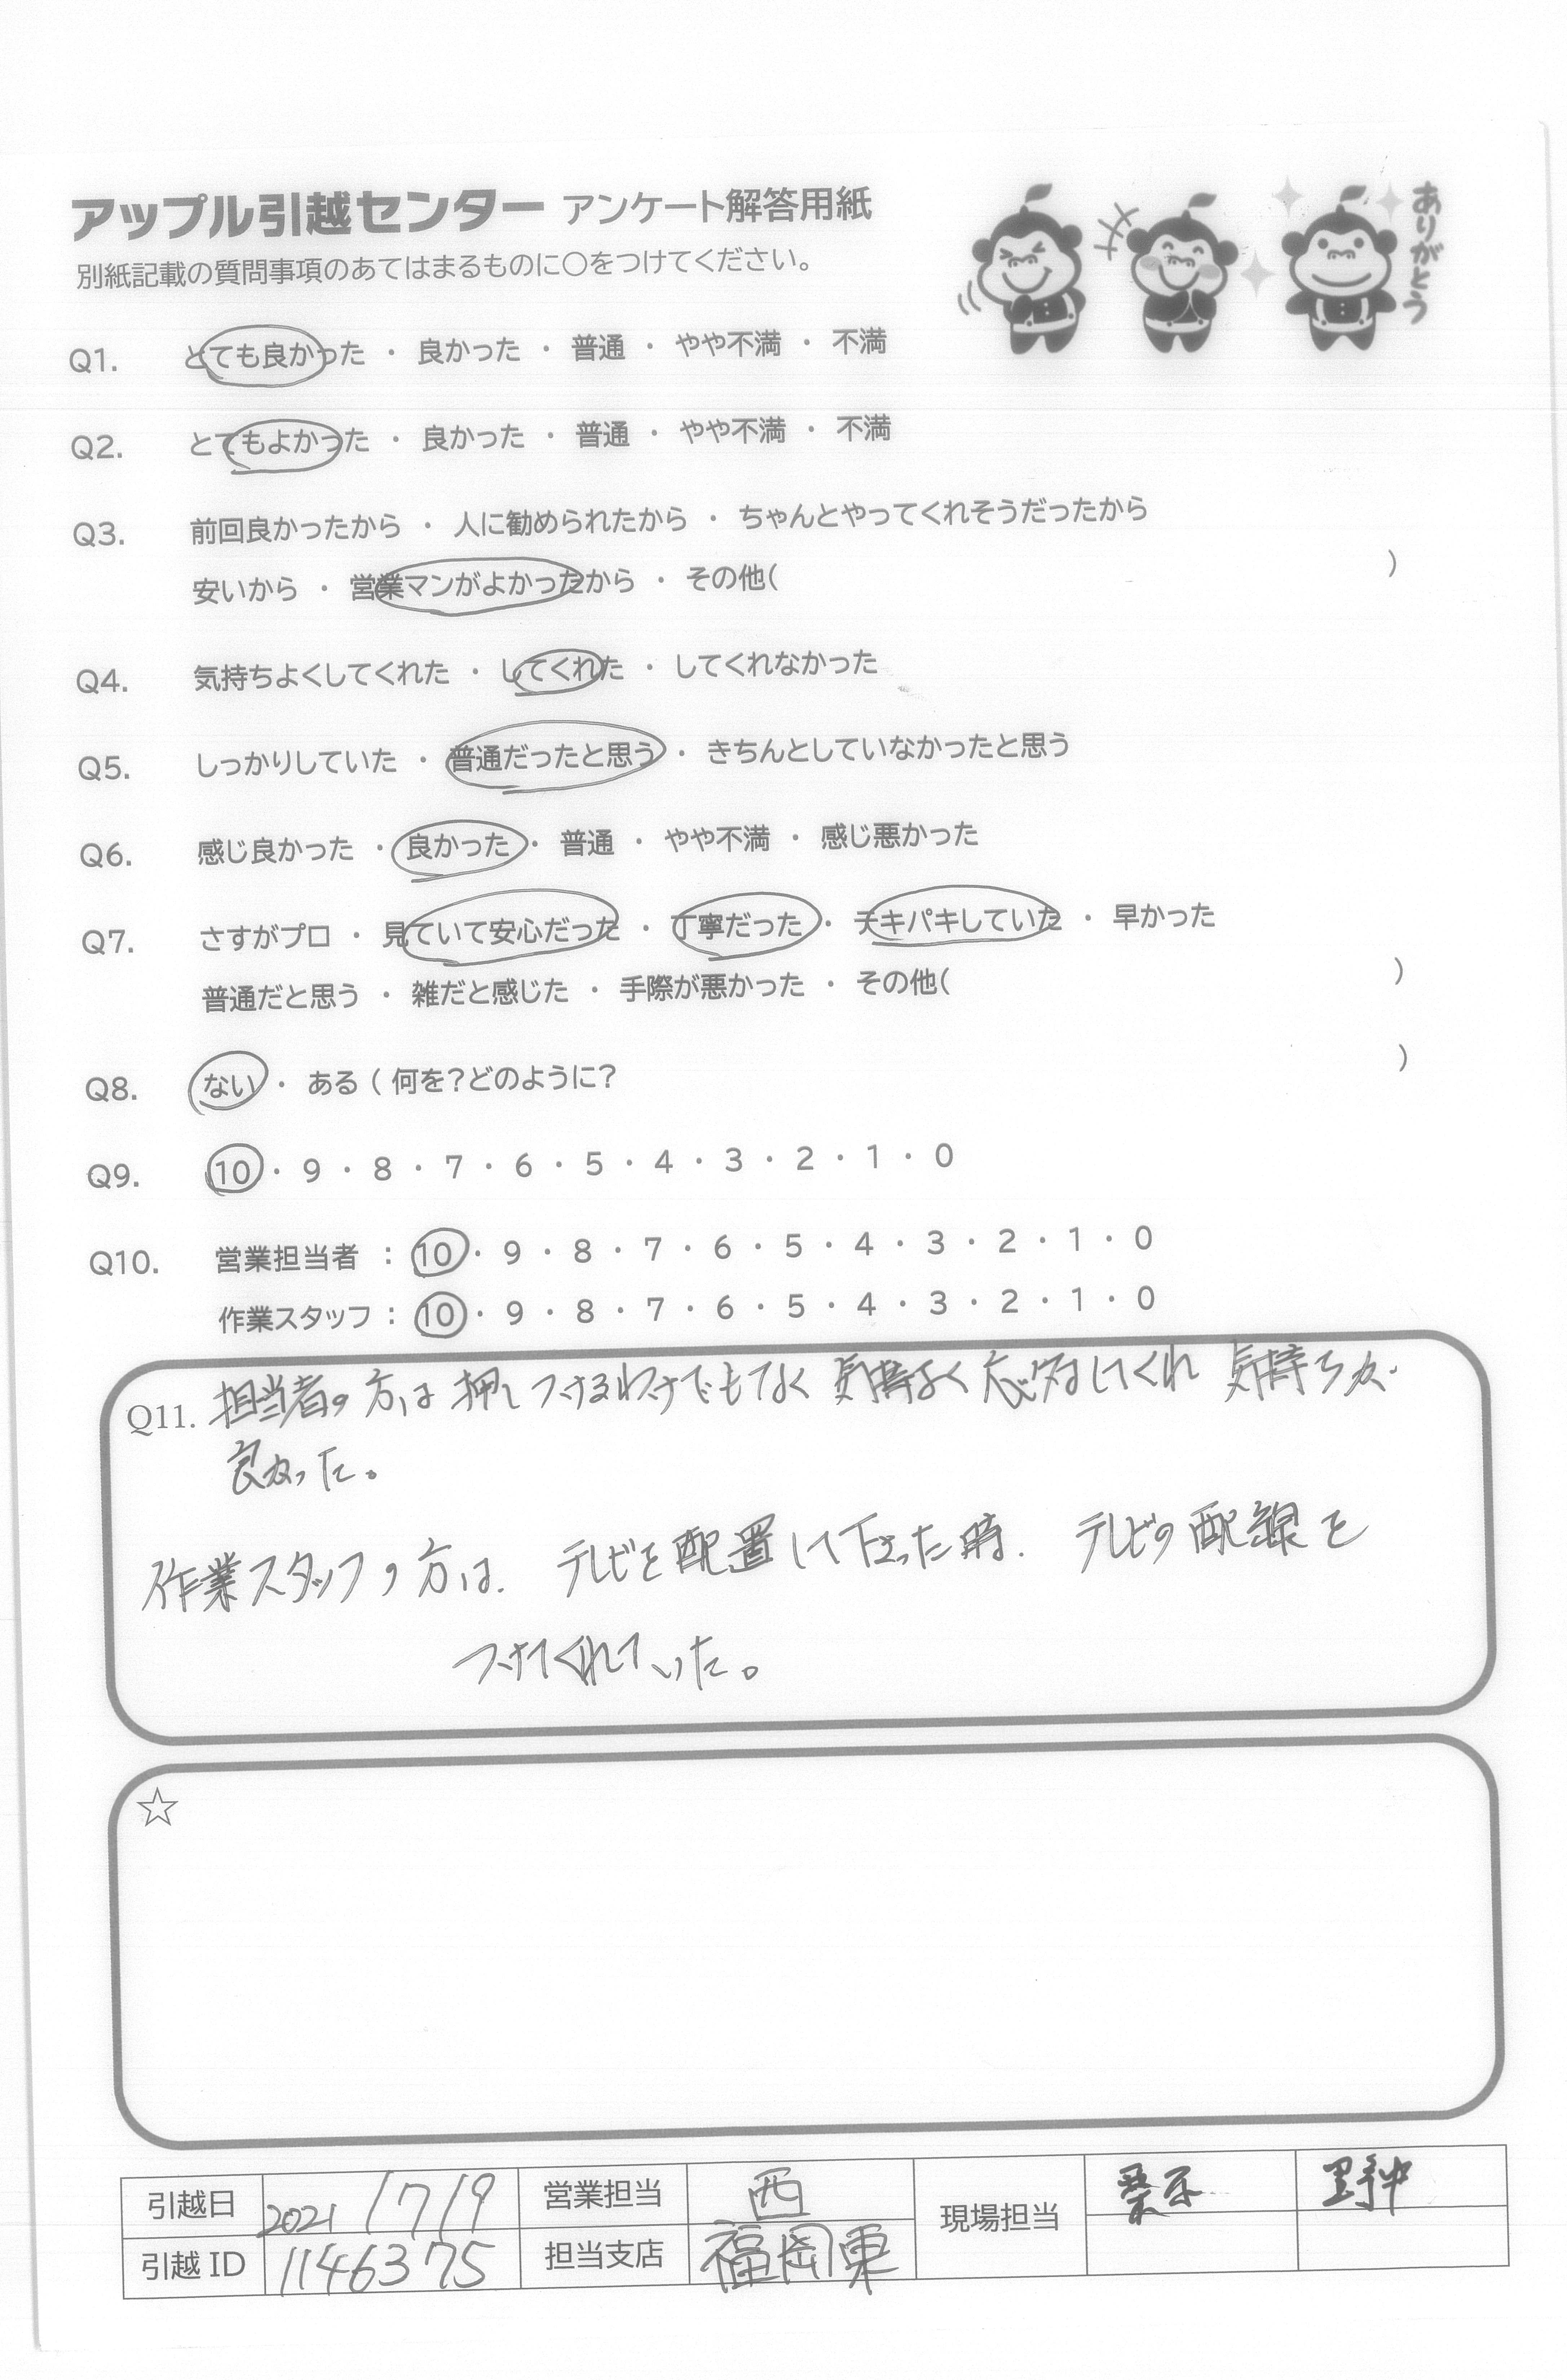 アップル引越センター アンケート解答用紙
ありがとう
別紙記載の質問事項のあてはまるものに○をつけてください。
Q1. とても良かった ・ 良かった ・ 普通 ・ やや不満 ・ 不満
Q2. とてもよかった ・ 良かった ・ 普通 ・ やや不満 ・ 不満
Q3. 前回良かったから ・ 人に勧められたから ・ ちゃんとやってくれそうだったから
安いから ・ 営業マンがよかったから ・ その他( )
Q4. 気持ちよくしてくれた ・ してくれた ・ してくれなかった
Q5. しっかりしていた ・ 普通だったと思う ・ きちんとしていなかったと思う
Q6. 感じ良かった ・ 良かった ・ 普通 ・ やや不満 ・ 感じ悪かった
Q7. さすがプロ ・ 見ていて安心だった ・ 丁寧だった ・ テキパキしていた ・ 早かった
普通だと思う ・ 雑だと感じた ・ 手際が悪かった ・ その他( )
Q8. ない ・ ある ( 何を?どのように? )
Q9. 10 ・ 9 ・ 8 ・ 7 ・ 6 ・ 5 ・ 4 ・ 3 ・ 2 ・ 1 ・ 0
Q10. 営業担当者 : 10 ・ 9 ・ 8 ・ 7 ・ 6 ・ 5 ・ 4 ・ 3 ・ 2 ・ 1 ・ 0
作業スタッフ : 10 ・ 9 ・ 8 ・ 7 ・ 6 ・ 5 ・ 4 ・ 3 ・ 2 ・ 1 ・ 0
Q11. 担当者の方は押しつけるわけでもなく 気持よく応対してくれ 気持ちが
良かった。
作業スタッフの方は、テレビを配置して下さった時、テレビの配線を
つけてくれていた。
☆
引越日 2021/7/9 営業担当 西 現場担当 野中
引越ID 1146375 担当支店 福岡東